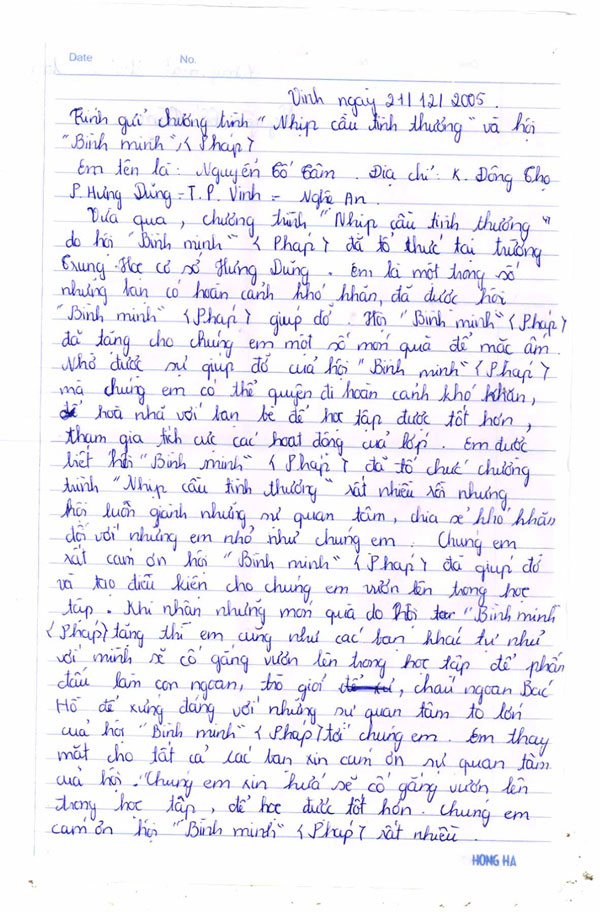 Date No.
Vinh ngày 21/12/2005.
Kính gửi chương trình "Nhịp cầu tình thương" và hội
"Bình minh" < Pháp >
Em tên là : Nguyễn Cố Tâm . Địa chỉ : K. Đông Thọ
P. Hưng Dũng - T.P. Vinh - Nghệ An .
Vừa qua , chương trình "Nhịp cầu tình thương "
do hội "Bình minh" < Pháp > đã tổ thức tại trường
Trung Học cơ sở Hưng Dũng . Em là một trong số
những bạn có hoàn cảnh khó khăn, đã được hội
"Bình minh" < Pháp > giúp đỡ . Hội "Bình minh" < Pháp >
đã tặng cho chúng em một số món quà để mặc ấm .
Nhờ được sự giúp đỡ của hội "Bình minh" < Pháp >
mà chúng em có thể quyện đi hoàn cảnh khó khăn,
để hoà nhã với bạn bè để học tập được tốt hơn ,
tham gia tích cực các hoạt động của lớp . Em được
biết hội "Bình minh" < Pháp > đã tổ chức chương
trình "Nhịp cầu tình thương" rất nhiều rồi nhưng
hội luôn giành những sự quan tâm, chia sẻ khó khăn
đối với những em nhỏ như chúng em . Chúng em
rất cám ơn hội "Bình minh" < Pháp > đã giúp đỡ
và tạo điều kiện cho chúng em vươn lên trong học
tập . Khi nhận những món quà do hội "Bình minh"
< Pháp > tặng thì em cũng như các bạn khác tự nhủ
với mình sẽ cố gắng vươn lên trong học tập để phấn
đấu làm con ngoan, trò giỏi , cháu ngoan Bác
Hồ để xứng đáng với những sự quan tâm to lớn
của hội "Bình minh" < Pháp > tới chúng em . Em thay
mặt cho tất cả các bạn xin cám ơn sự quan tâm
của hội . Chúng em xin hứa sẽ cố gắng vươn lên
trong học tập , để học được tốt hơn . Chúng em
cám ơn hội "Bình minh" < Pháp > rất nhiều .
HONG HA